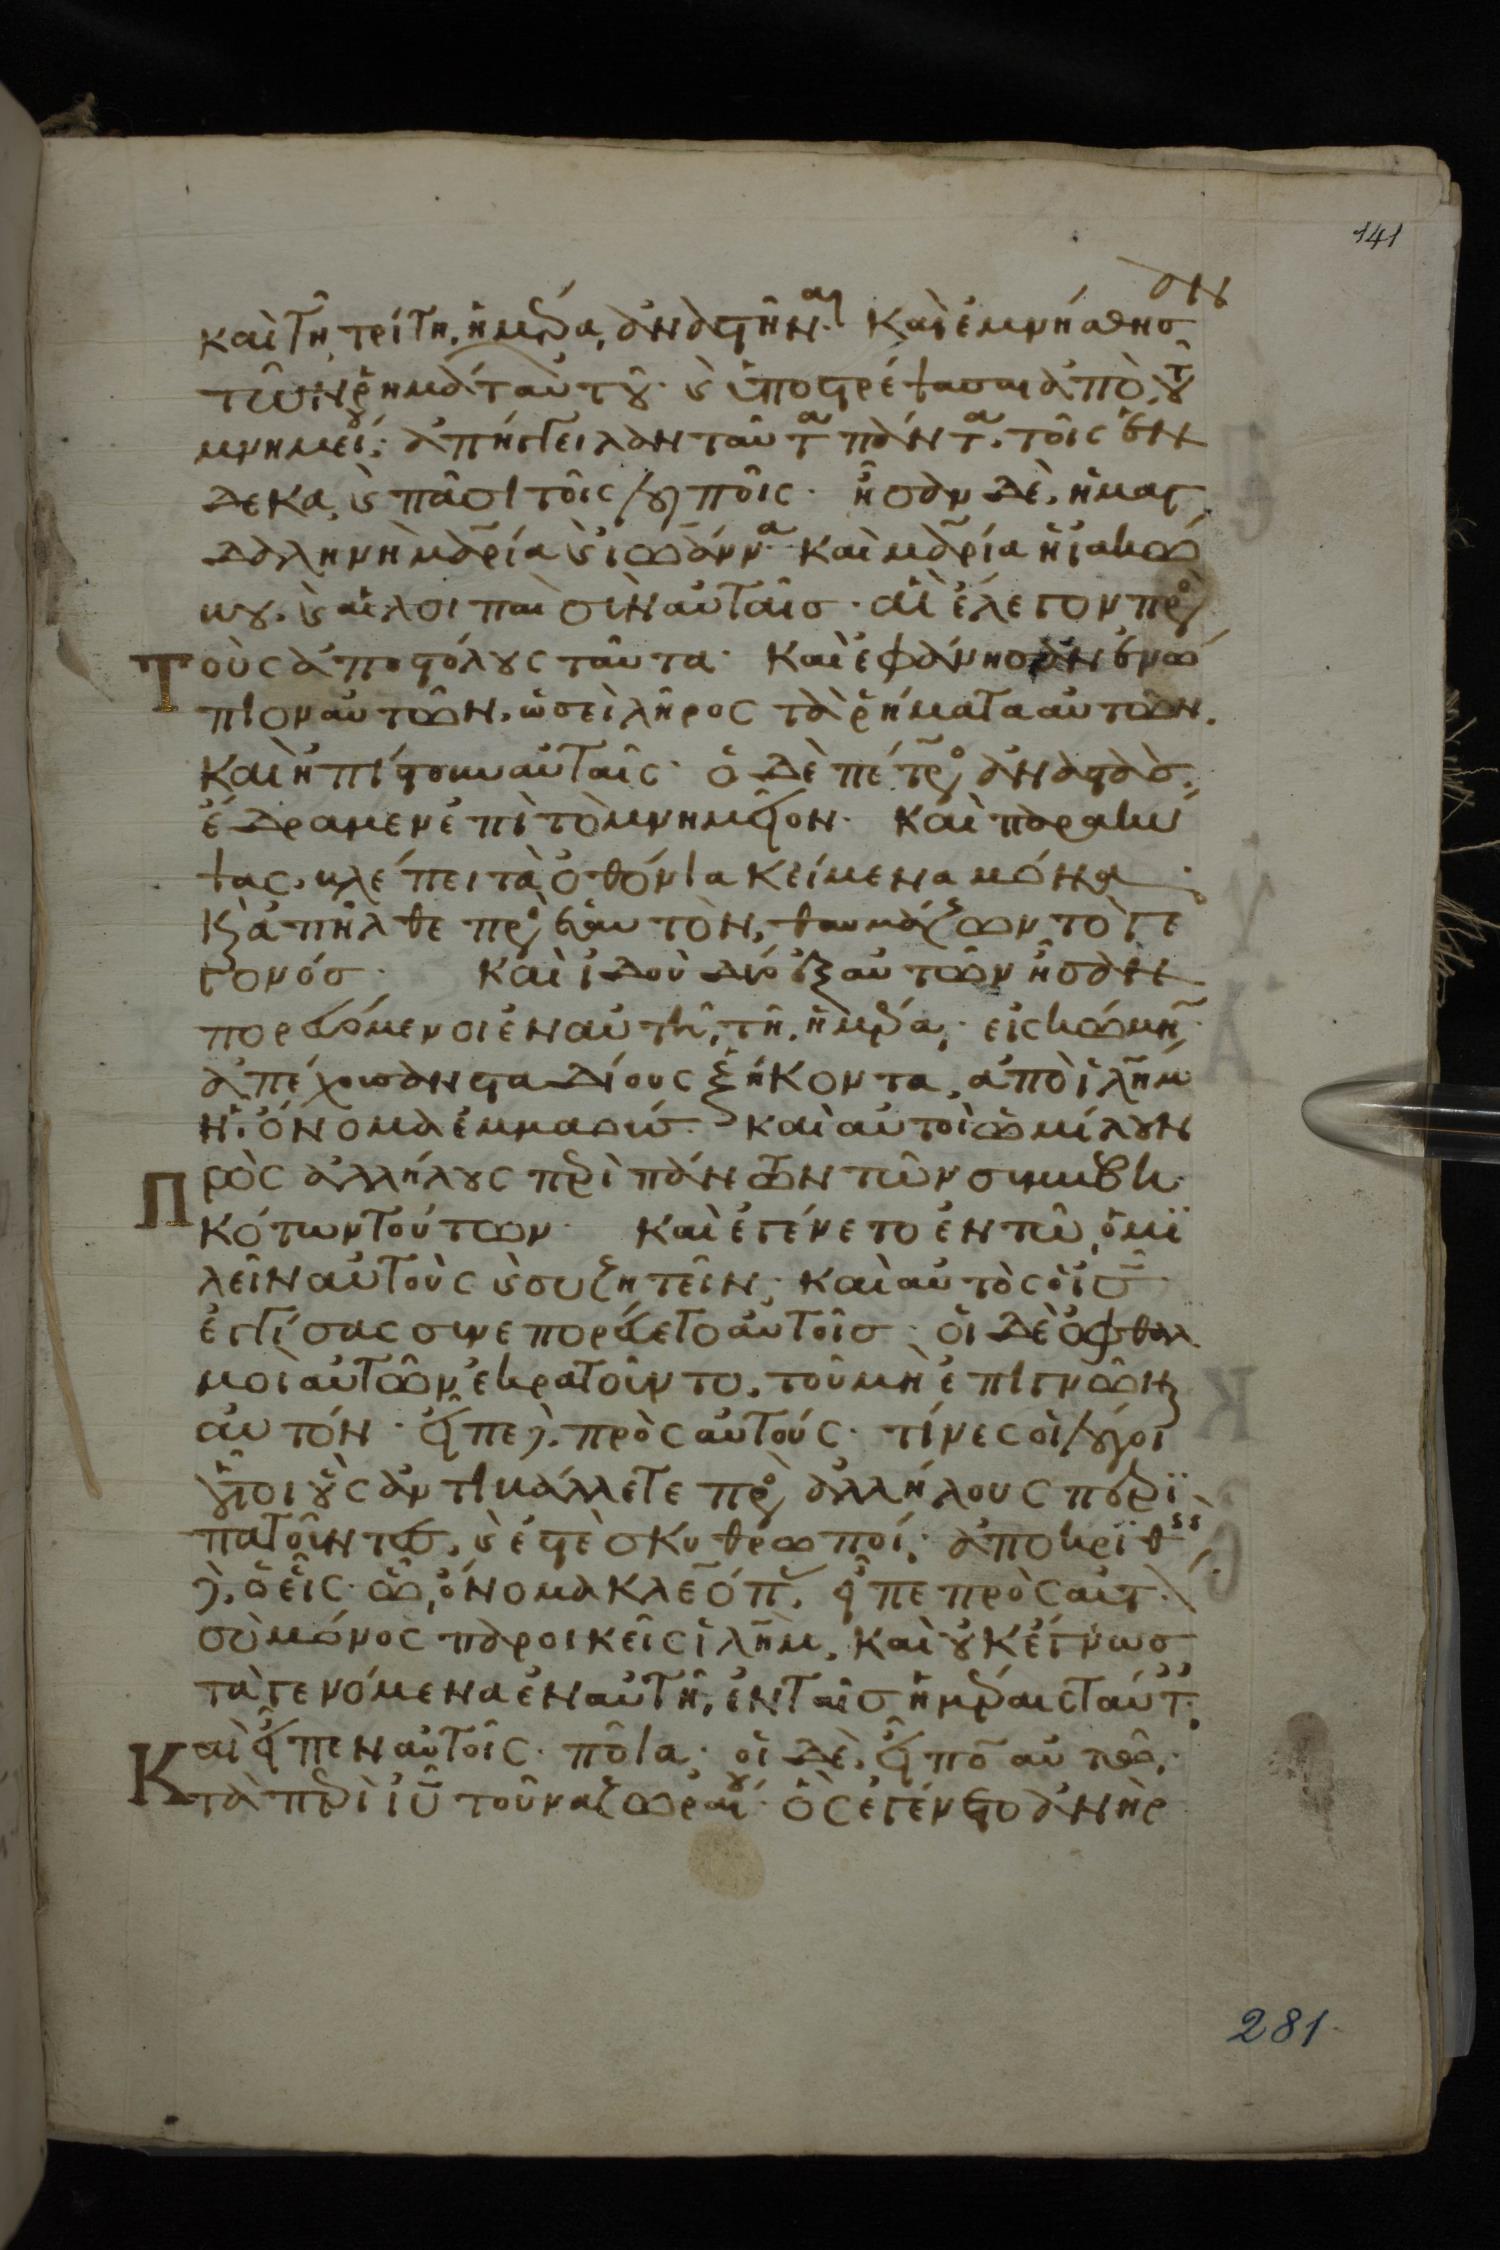 141
καὶ τῆ τρίτη ἡμέρα ἀναστῆναι· Καὶ ἐμνήσθησαν
τῶν ῥημάτ αὐτοῦ· κ ὑποστρέψασαι ἀπὸ τοῦ
μνημείου· ἀπήγγειλαν ταῦτα πάντα· τοῖς ἕν
δεκα, κ πᾶσι τοῖς λοιποῖς· ἦσαν δὲ, ἡ μαγ
δαληνὴ μαρία κ ἰωάννα· καὶ μαρία ἡ ἰακώ
βου, κ αἱ λοιπαὶ σὺν αὐταῖσ· αἳ ἔλεγον πρὸς
τοὺς ἀποστόλους ταῦτα· Καὶ ἐφάνησαν ἐνώ
πιον αὐτῶν, ὡσεὶ λῆρος τὰ ῥήματα αὐτῶν,
καὶ ἠπίστουν αὐταῖς· ὁ δὲ πέτρος ἀναστὰσ,
ἔδραμεν ἐπὶ τὸ μνημεῖον· Καὶ παρακύ
ψας, βλέπει τὰ ὀθόνια κείμενα μόνα·
κ ἀπῆλθε πρὸς ἑαυτὸν, θαυμάζων τὸ γε
γονόσ· Καὶ ἰδοὺ δύο ἐξ αὐτῶν ἦσαν
πορευόμενοι ἐν αὐτῆ τῆ ἡμέρα· εἰς κώμην
ἀπέχουσαν σταδίους ἑξήκοντα, ἀπὸ ἰλῆμ
ἧ ὄνομα ἐμμαούσ· καὶ αὐτοὶ ὡμίλουν
πρὸς ἀλλήλους περὶ πάντων τῶν συμβε
κότων τούτων· Καὶ ἐγένετο ἐν τῶ ὁμι
λεῖν αὐτοὺς κ συζητεῖν· καὶ αὐτὸς ὁ ἰσ
ἐγγίσας συνεπορεύετο αὐτοῖσ· οἱ δὲ ὀφθαλ
μοὶ αὐτῶν ἐκρατοῦντο, τοῦ μὴ ἐπιγνῶναι
αὐτόν· εἶπε δὲ πρὸς αὐτούς· τίνες οἱ λόγοι
οὗτοι οὓς ἀντιβάλλετε πρὸς ἀλλήλους περι
πατοῦντεσ, κ ἐστὲ σκυθρωποί· ἀποκριθεὶς
δὲ ὁ εἷς· ὧ ὄνομα κλεόπας, εἶπε πρὸς αὐτ
σὺ μόνος παροικεῖς ἰλῆμ, καὶ οὐκ ἔγνωσ
τὰ γενόμενα ἐν αὐτῆ, ἐν ταῖσ ἡμέραις ταύτ
καὶ εἶπεν αὐτοῖς· ποῖα· οἱ δὲ εἶπον αὐτῶ·
τὰ περὶ ἰυ τοῦ ναζωραίου· ὃς ἐγένετο ἀνὴρ
281